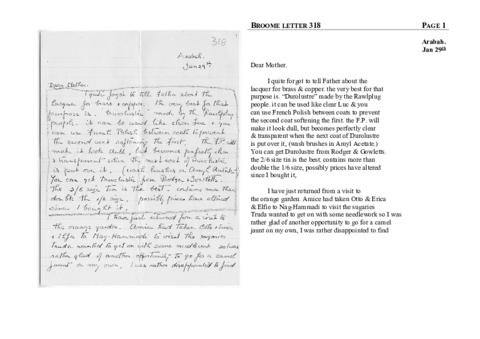 318
Arabah.
Jan 29th
Dear Mother.
I quite forgot to tell Father about the
lacquer for brass & copper. the very best for that
purpose is. "Durolustre" made by the Rawlplug
people. it can be used like clear Luc & you
can use French Polish between coats to prevent
the second coat softening the first. the F.P. will
make it look dull, but becomes perfectly clear
& transparent when the next coat of Durolustre
is put over it, (wash brushes in Amyl Acetate)
You can get Durolustre from Rodger & Gowletts.
the 2/6 size tin is the best. contains more than
double the 1/6 size, possibly prices have altered
since I bought it,
I have just returned from a visit to
the orange garden. Amice had taken Otto & Erica
& Effie to Nag-Hammadi to visit the sugaries
Truda wanted to get on with some needlework so I was
rather glad of another opportunity to go for a camel
jaunt on my own, I was rather disappointed to find
BROOME LETTER 318 PAGE 1
Arabah.
Jan 29th
Dear Mother,
I quite forgot to tell Father about the
lacquer for brass & copper. the very best for that
purpose is. "Durolustre" made by the Rawlplug
people. it can be used like clear Luc & you
can use French Polish between coats to prevent
the second coat softening the first. the F.P. will
make it look dull, but becomes perfectly clear
& transparent when the next coat of Durolustre
is put over it, (wash brushes in Amyl Acetate)
You can get Durolustre from Rodger & Gowletts.
the 2/6 size tin is the best. contains more than
double the 1/6 size, possibly prices have altered
since I bought it,
I have just returned from a visit to
the orange garden. Amice had taken Otto & Erica
& Effie to Nag Hammadi to visit the sugaries
Truda wanted to get on with some needlework so I was
rather glad of another opportunity to go for a camel
jaunt on my own, I was rather disappointed to find